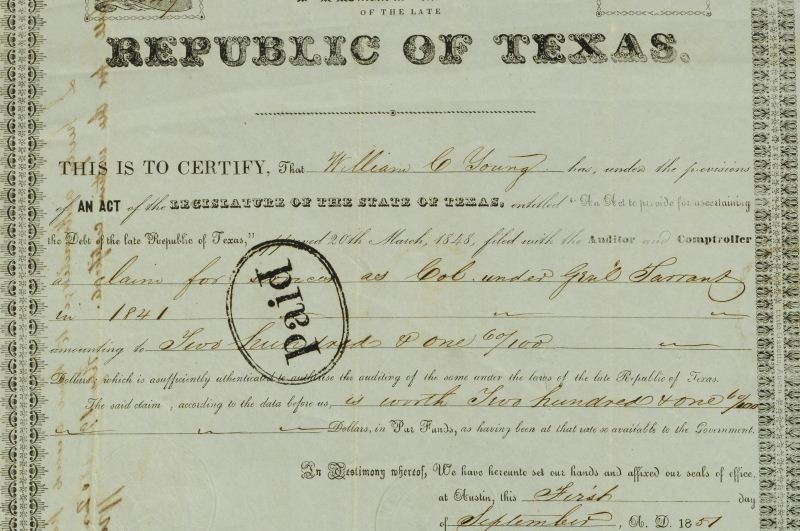 OF THE LATE
REPUBLIC OF TEXAS.
THIS IS TO CERTIFY, That William C Young has, under the provisions
of AN ACT of the LEGISLATURE OF THE STATE OF TEXAS, entitled "An Act to provide for ascertaining
the Debt of the late Republic of Texas," 20th March, 1848, filed with the Auditor and Comptroller
a claim for services as Col. under Genl. Tarrant
in 1841
paid
amounting to Two hundred & one 60/100
Dollars; which is asufficiently uthenticated to authorise the auditing of the same under the laws of the late Republic of Texas.
The said claim, according to the data before us, is worth Two hundred & one 60/100
Dollars, in Par Funds, as having been at that rate so available to the Government.
In Testimony whereof, We have hereunto set our hands and affixed our seals of office,
at Austin, this First day
of September, A. D. 1851